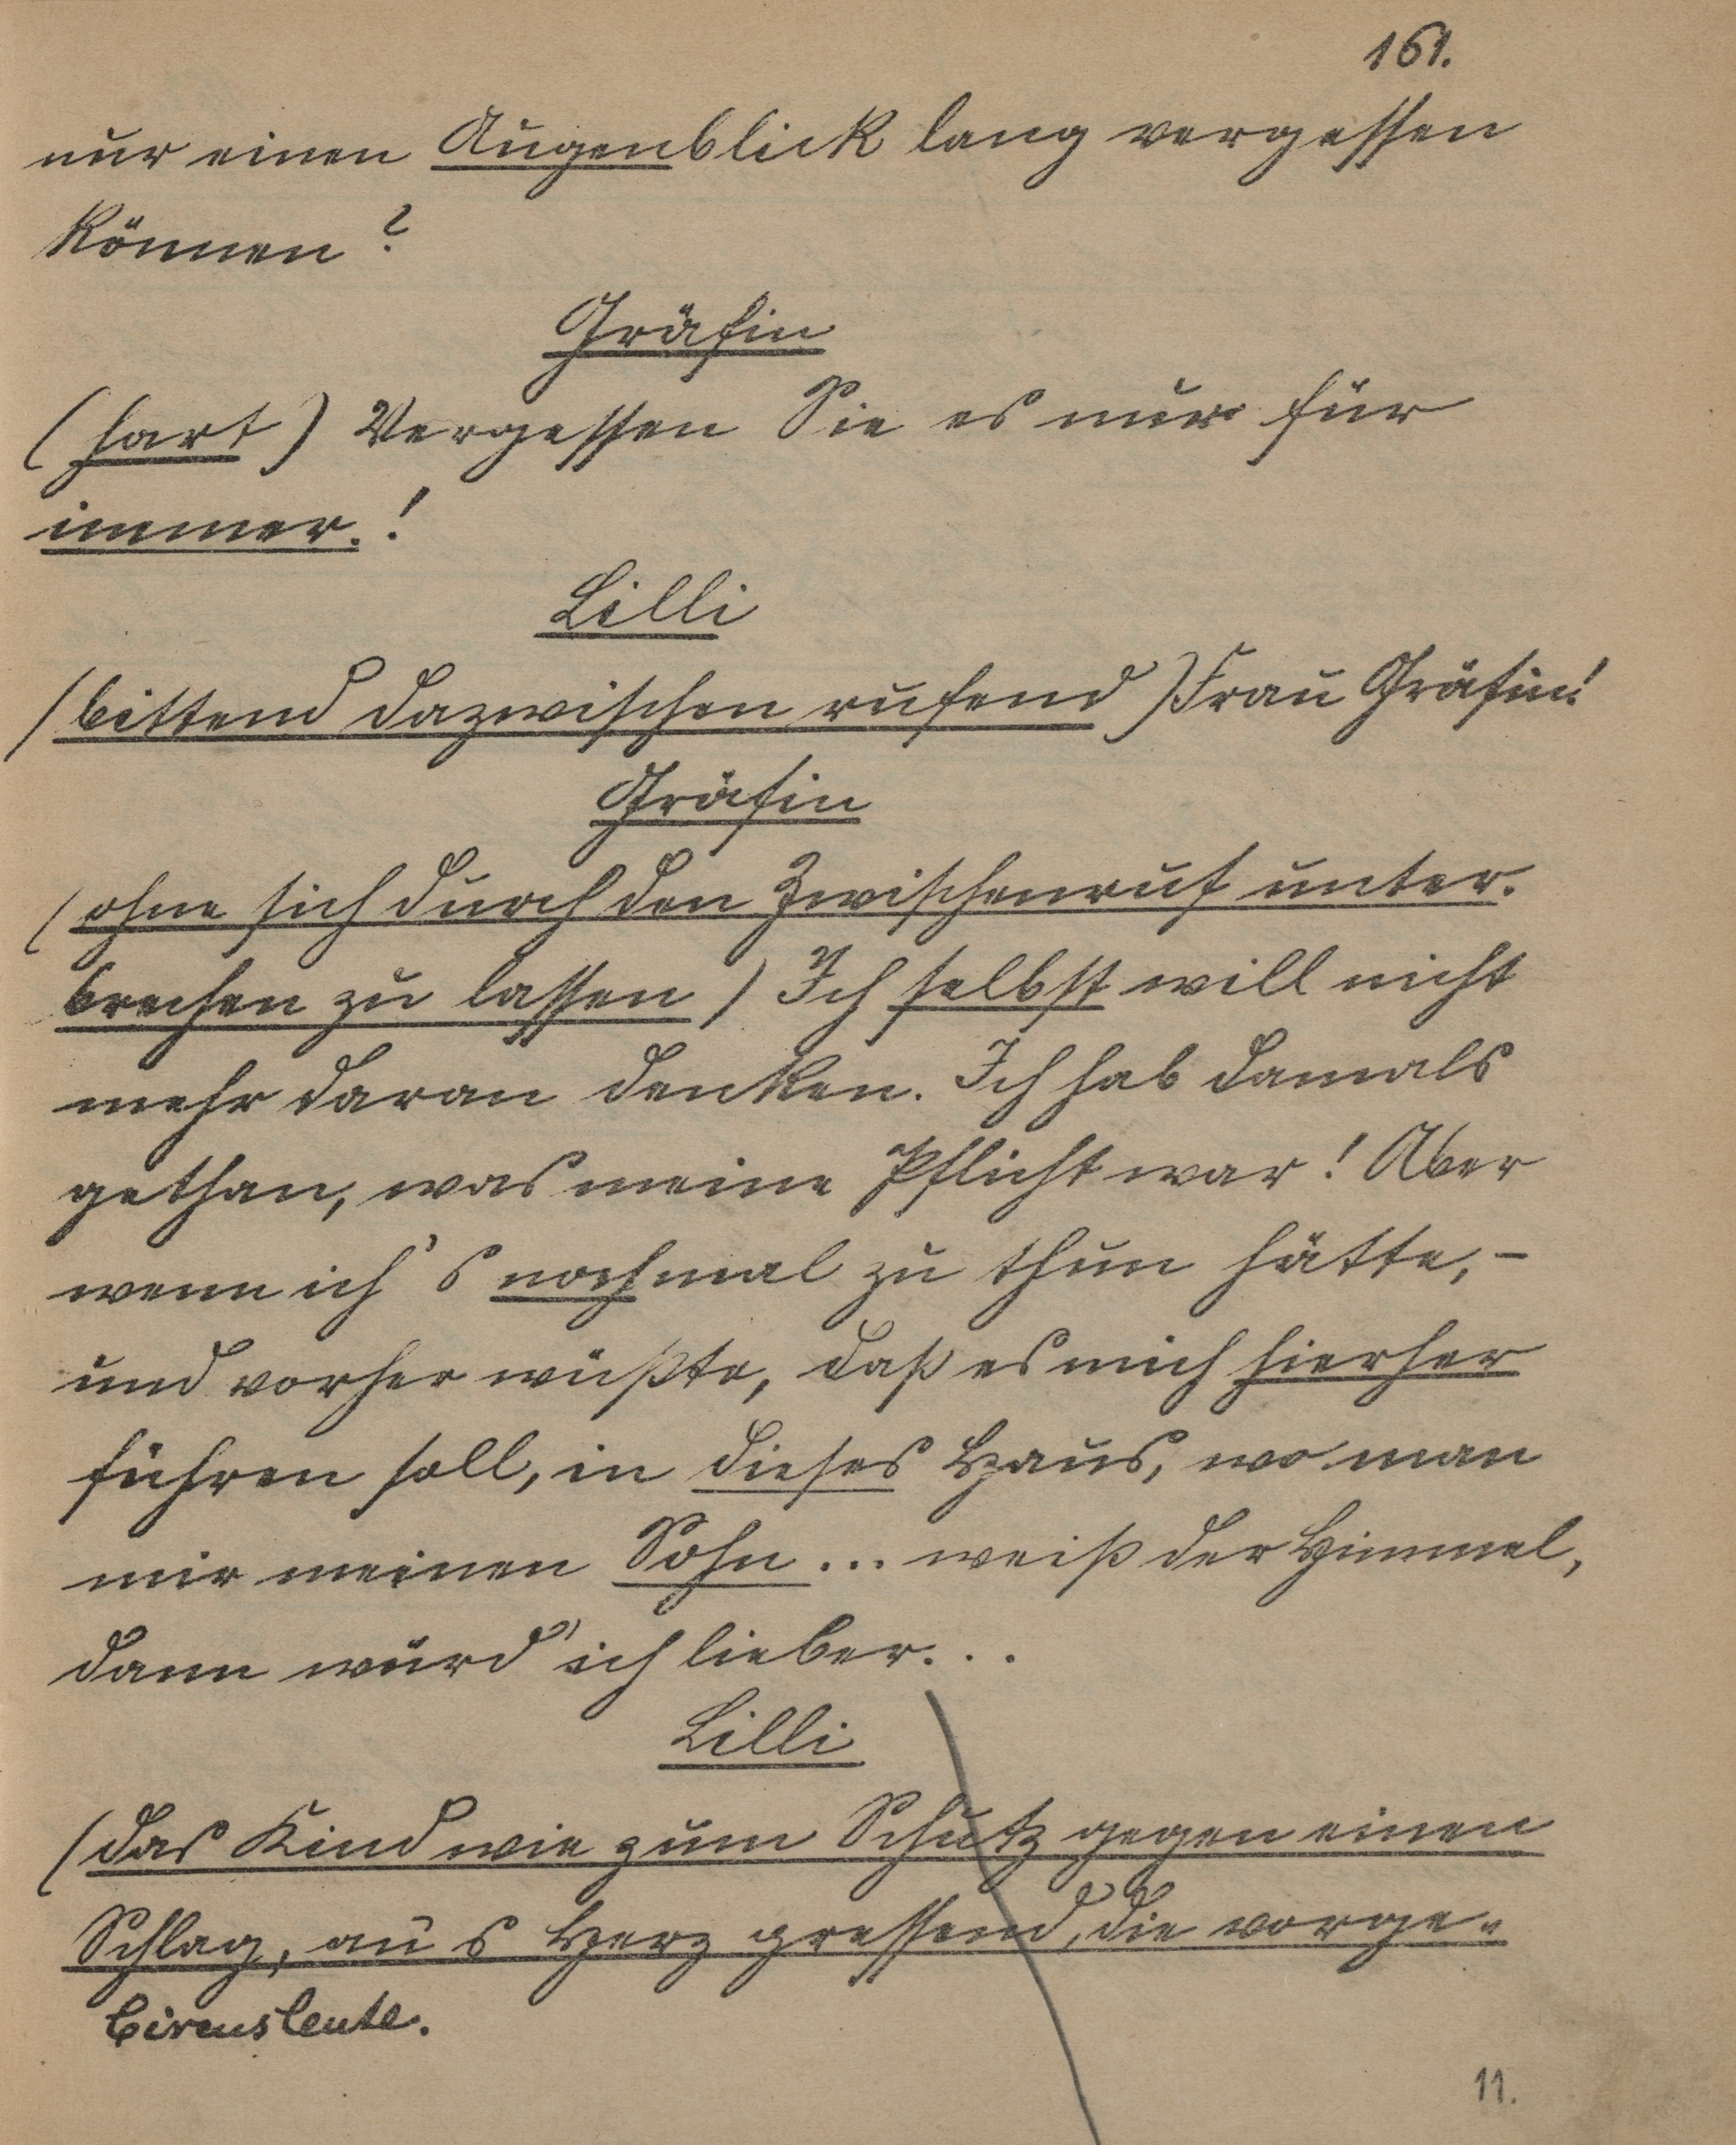 161.
nur einen Augenblick lang vergessen
können?
Gräfin
(hart) Vergessen Sie es nur für
immer.!
Lilli
(bittend dazwischen rufend) Frau Gräfin!
Gräfin
(ohne sich durch den Zwischenruf unter-
brechen zu lassen) Ich selbst will nicht
mehr daran denken. Ich hab damals
gethan, was meine Pflicht war! Aber
wenn ich's nochmal zu thun hätte, -
und vorher wüßte, daß es mich hierher
führen soll, in dieses Haus, wo man
mir meinen Sohn ... weiß der Himmel,
dann würd' ich lieber...
Lilli
(das Kind wie zum Schutz gegen einen
Schlag, an's Herz pressend, die vorge-
Circusleute.
11.